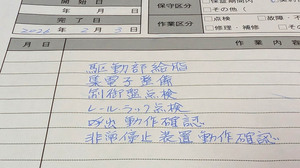 開始日
年 月 日
完了日
2026年 2月 3日
保守区分
保証期間
契約
その他(
作業区分
点検
故障
修理・補修
その
月 日
作業内容
駆動部給脂
集電子整備
制御盤点検
レールラック点検
呼出動作確認
非常停止装置動作確認